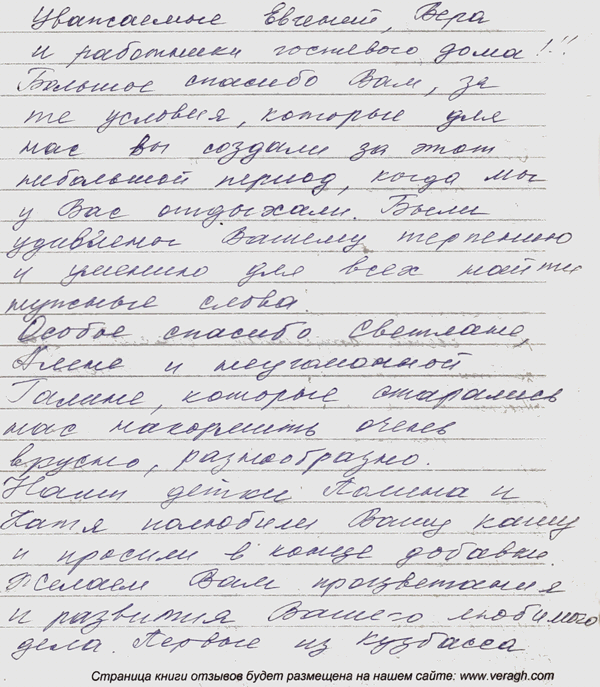 Уважаемые Евгений, Вера
и работники гостевого дома!!!
Большое спасибо Вам, за
те условия, которые для
нас вы создали за этот
небольшой период, когда мы
у Вас отдыхали. Были
удивлены Вашему терпению
и умению для всех найти
нужные слова.
Особое спасибо Светлане,
и неугомонной
Галине, которые старались
нас накормить очень
вкусно, разнообразно.
Наши детки Полина и
Катя полюбили Вашу кашу
и просили в конце добавки.
Желаем Вам процветания
и развития Вашего любимого
дела. Первые из Кузбасса
Страница книги отзывов будет размещена на нашем сайте: www.veragh.com